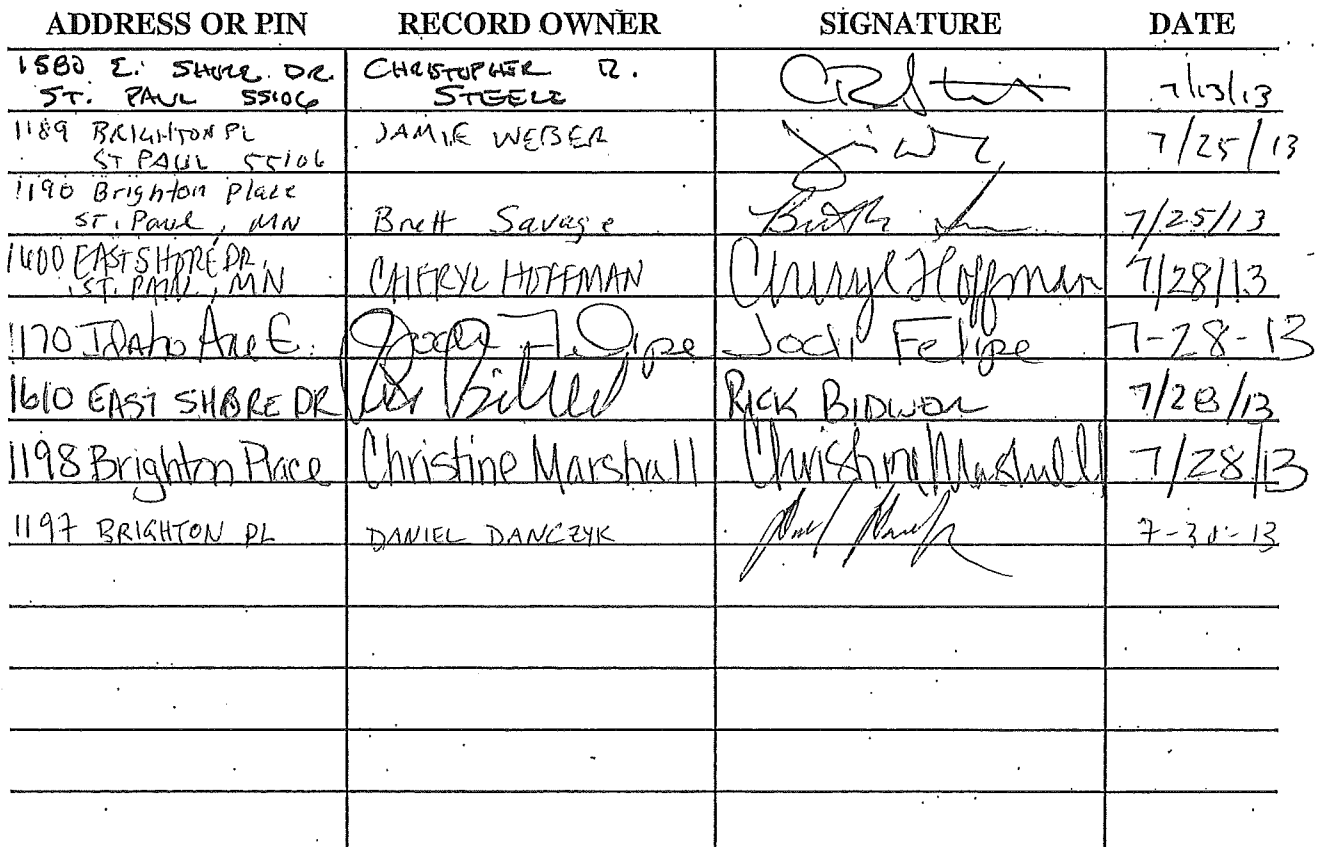 ADDRESS OR PIN RECORD OWNER SIGNATURE DATE
1580 E. SHORE DR. CHRISTOPHER R. 7/13/13
ST. PAUL 55106 STEELE
1189 BRIGHTON PL JAMIE WEBER 7/25/13
ST PAUL 55106
1190 Brighton Place
ST. Paul, MN Brett Savage 7/25/13
1600 EAST SHORE DR.
ST. PAUL, MN CHERYL HOFFMAN Cheryl Hoffman 7/28/13
1170 IDAho Ave E. Jodi Felipe Jodi Felipe 7-28-13
1610 EAST SHORE DR RICK BIDWELL 7/28/13
1198 Brighton Place Christine Marshall Christine Marshall 7/28/13
1197 BRIGHTON PL DANIEL DANCZYK 7-30-13